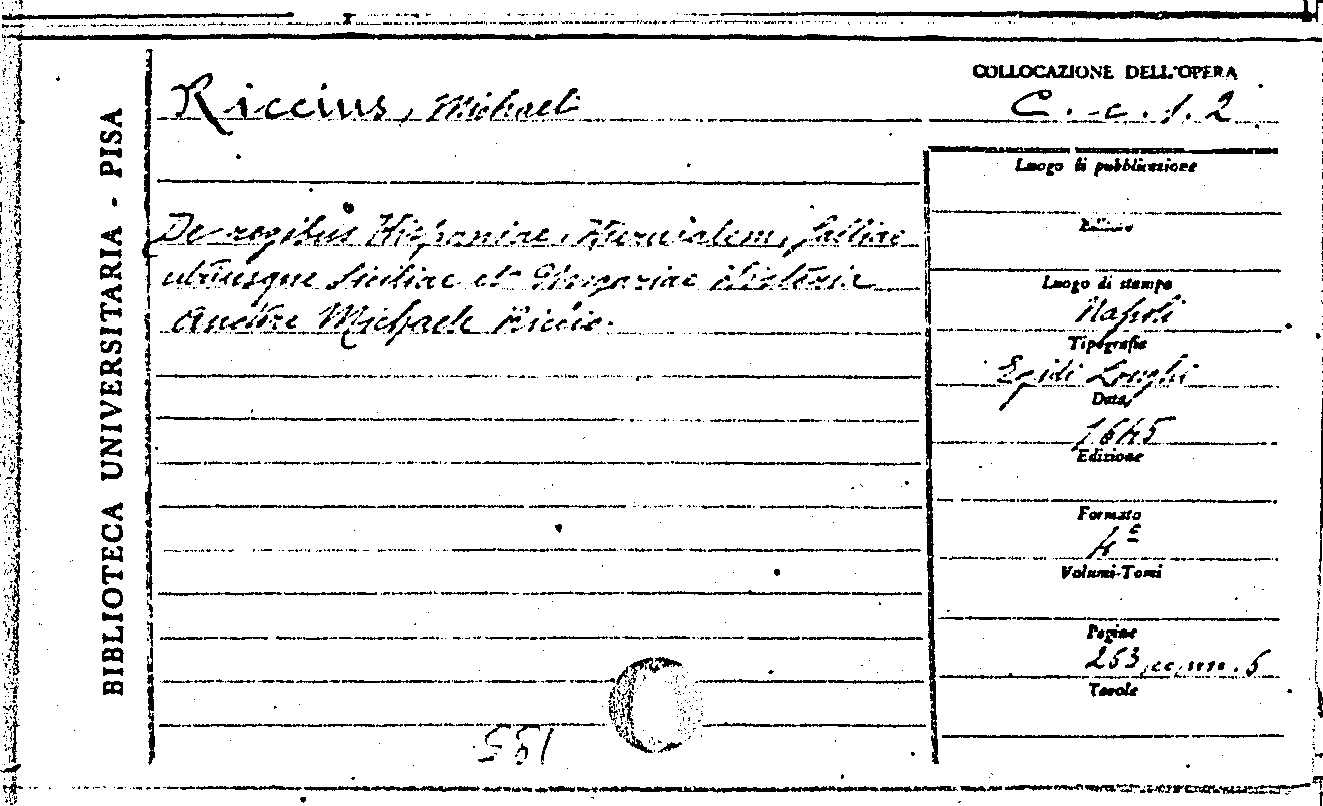 BIBLIOTECA UNIVERSITARIA - PISA
Riccius, Michael
COLLOCAZIONE DELL'OPERA
C. c. 1. 2
Luogo di pubblicazione
Editore
De regibus Hispaniae, Hierusalem, Galliae
utriusque Siciliae et Ungariae Historia
Auctore Michaele Riccio.
Luogo di stampa
Napoli
Tipografia
Egidi Longhi
Data
1645
Edizione
Formato
4º
Volumi-Tomi
Pagine
253, cc. nn. 5
Tavole
551